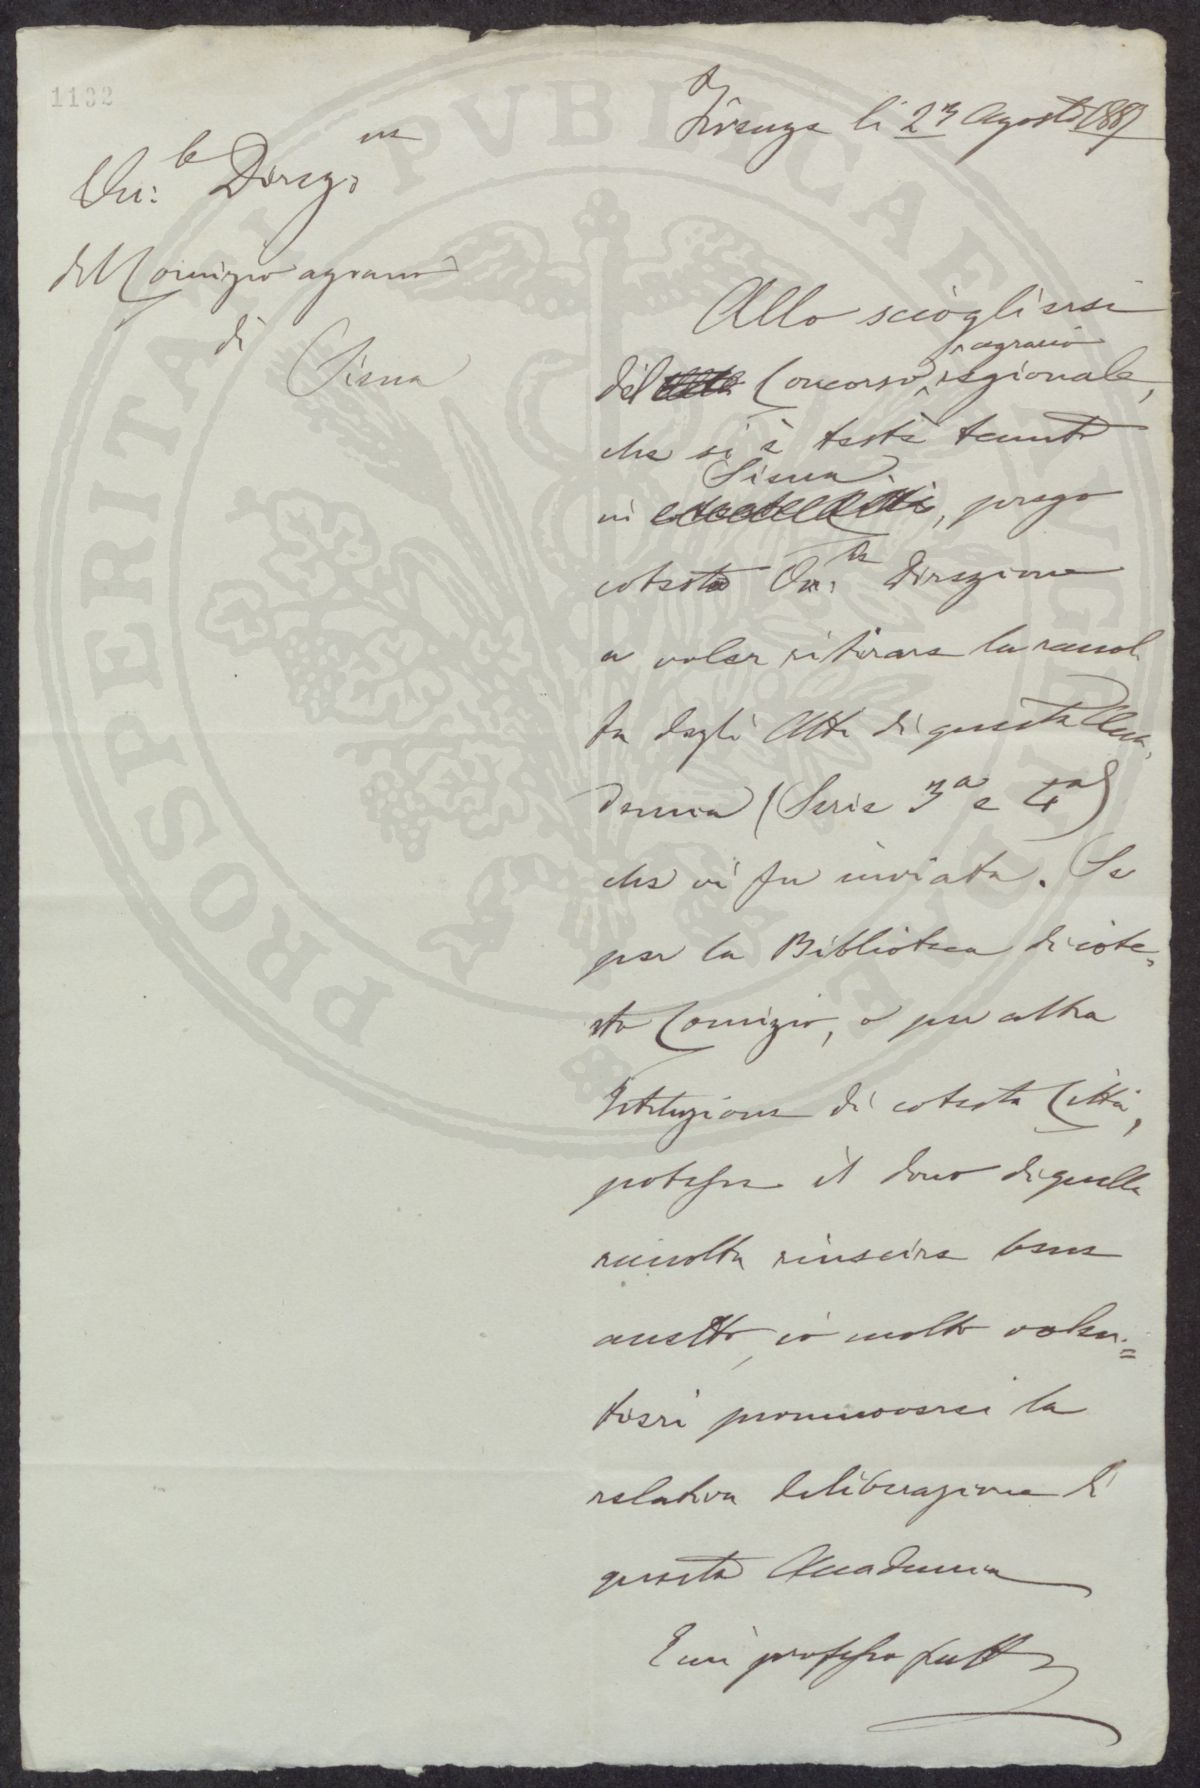 1132
Firenze li 23 Agosto 1887
On:le Direz:ne
del Comizio agrario
di Siena
Allo sciogliersi
del Concorso agrario regionale,
che si è testè tenuto
in Siena, prego
cotesta On:le Direzione
a voler ritirare la raccol
ta degli Atti di questa Acca,
demia (Serie 3a e 4a)
che vi fu inviata. Se
per la Biblioteca di cote,
sto Comizio, o per altra
Istituzione di cotesta Città,
potesse il dono di quella
raccolta riuscire bene
accetto, io molto volen=
tieri promuoverei la
relativa deliberazione di
questa Accademia
E mi professo
PROSPERITATI PVBLICAE AVGENDAE